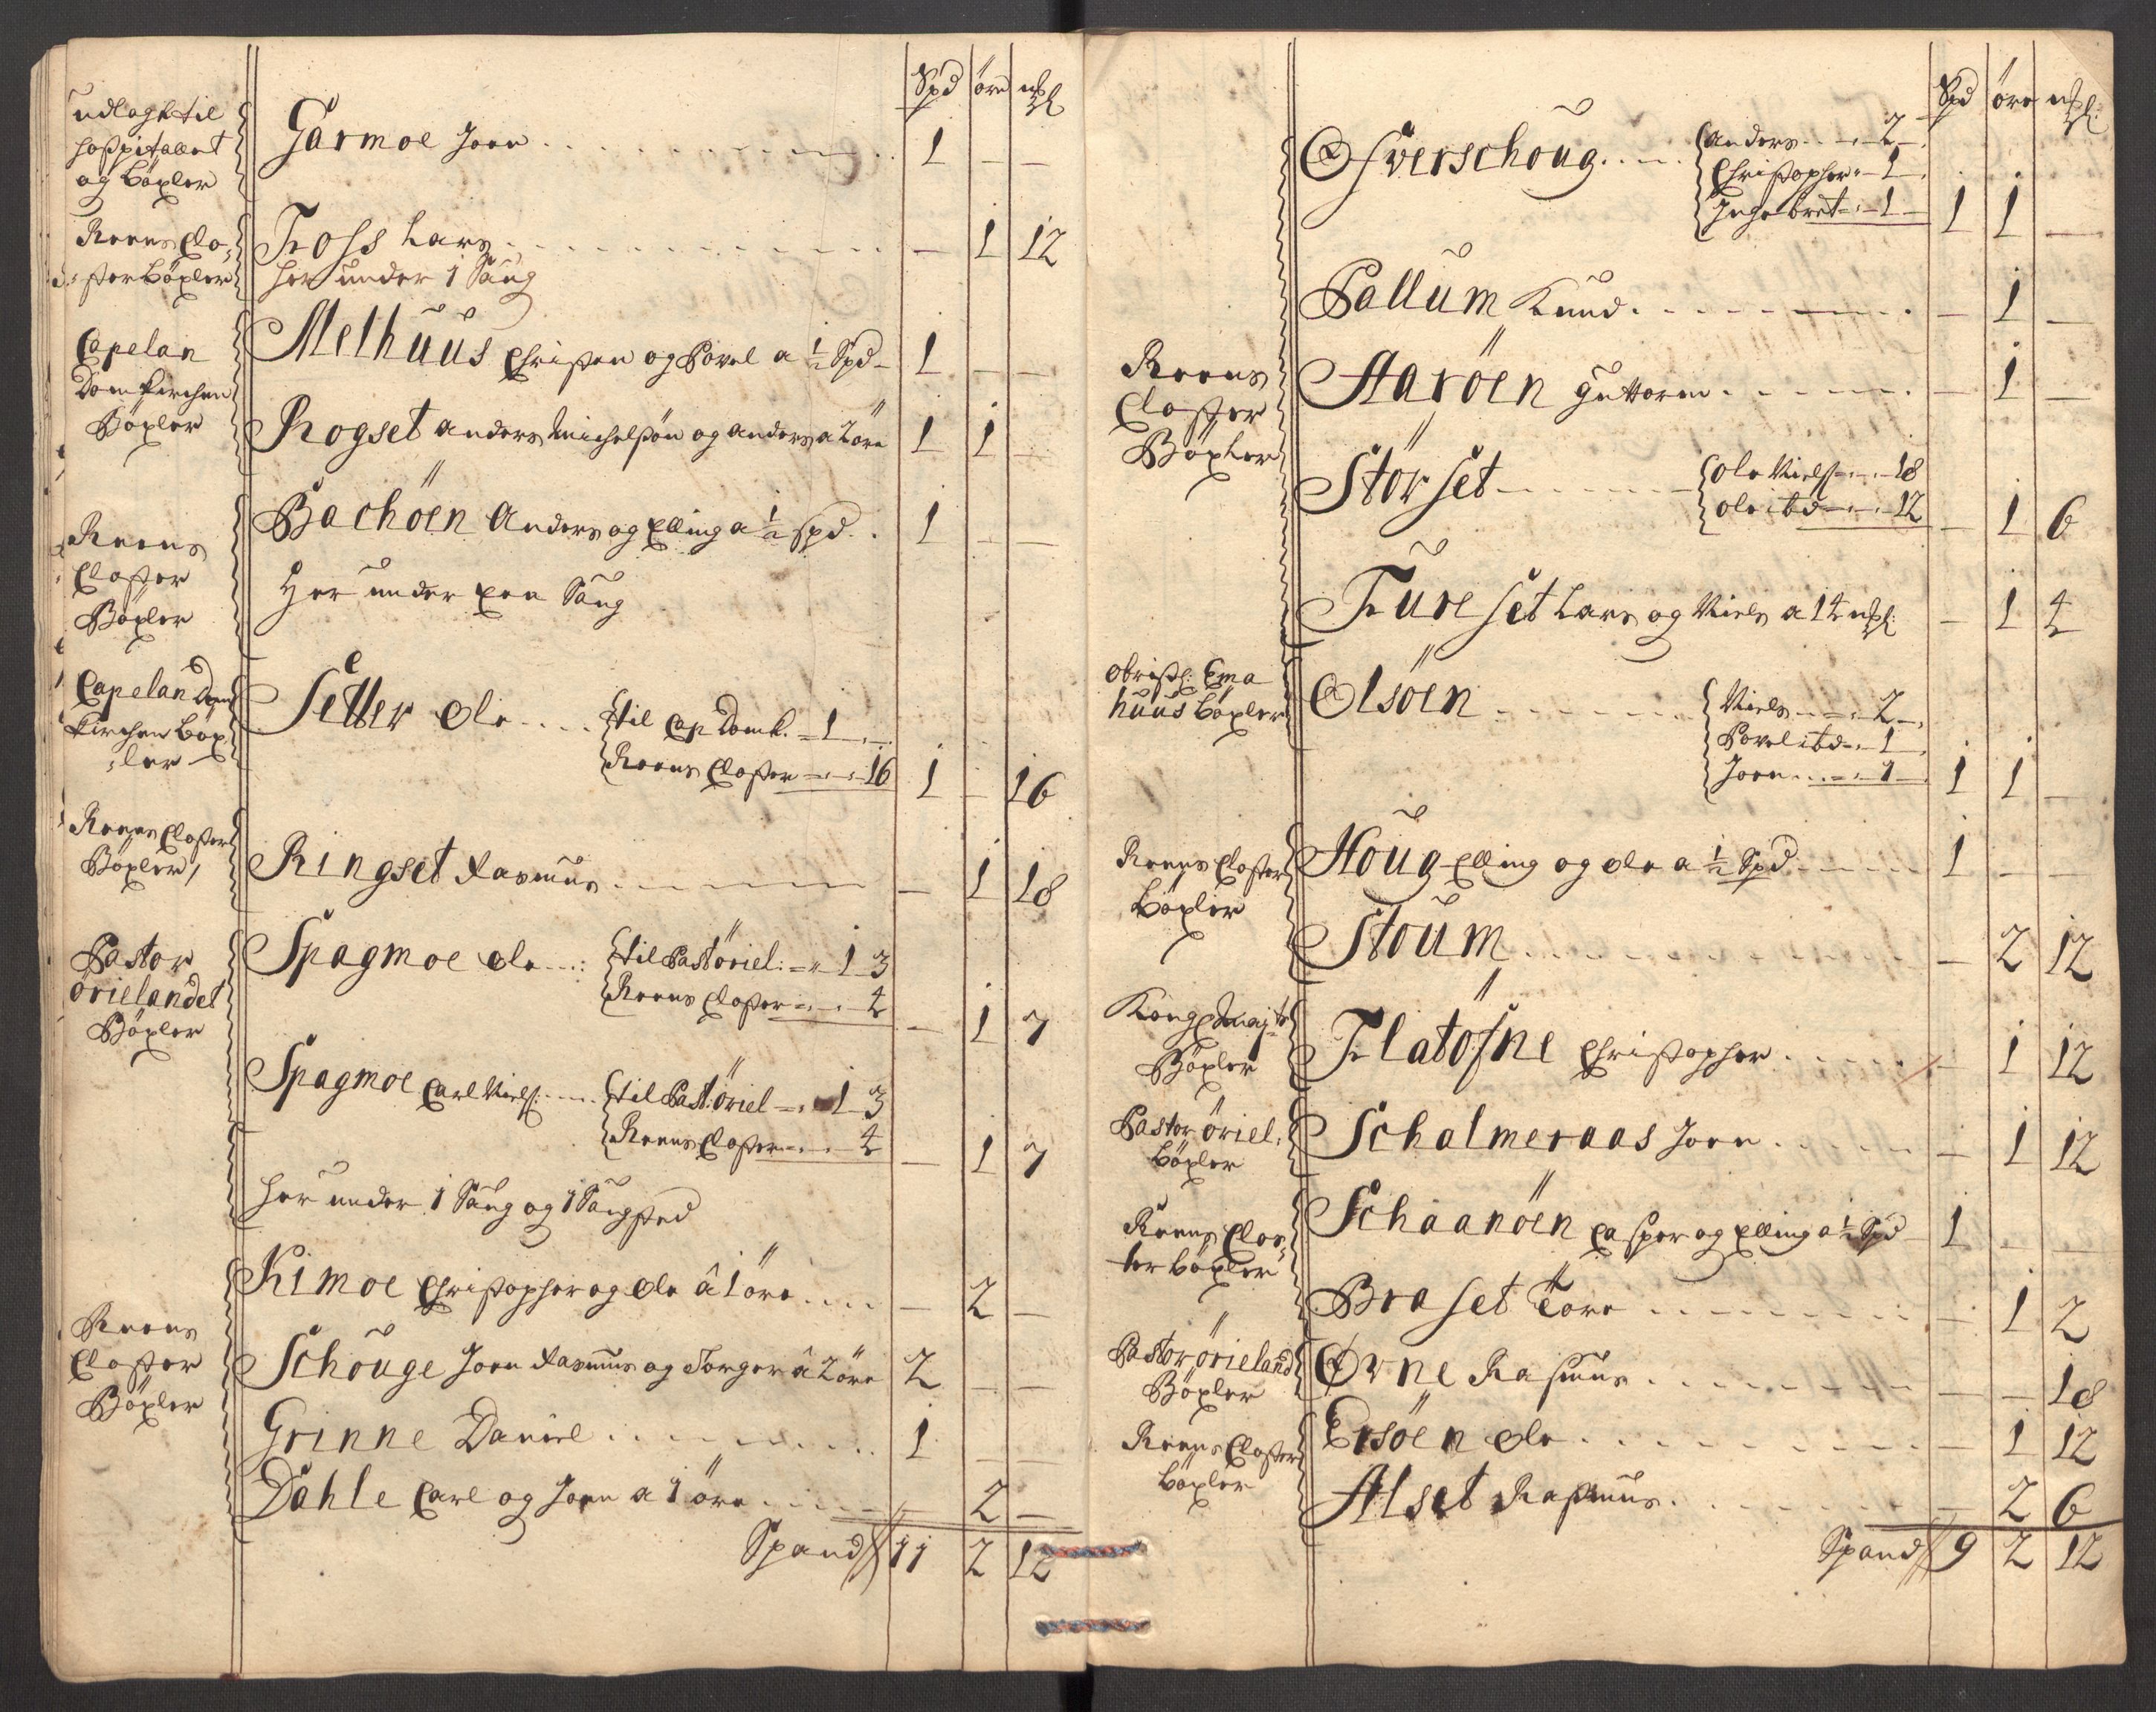 Spd öre mkl
udlagt til
hospitallet
og böxler
Garmoe Joen 1 - -
Reens Clo-
ster böxler
Foss Lars - 1 12
her under 1 Saug
Capelan
Domkirchen
Böxler
Melhuus Christen og Povel a ½ Spd 1 - -
Rogset anders Michelsön og anders a 2 öre 1 1 -
Reens
Closter
Böxler
Bachöen Anders og Elling a ½ spd. 1 - -
Her under een Saug
Capelan Dom
kirchen böx
ler
Setter Ole til Cap Domk. 1
Reens Closter 16 1 - 16
Reens Closter
Böxler
Ringset Rasmus - 1 18
Pastor
örielandet
Böxler
Spagmoe Ole til Past öriel: 1 3
Reens Closter 4 - 1 7
Spagmoe Carl Niels: til Past: öriel 1 3
Reens Closter 4 - 1 7
her under 1 Saug og 1 Saugsted
Kimoe Christopher og Ole â 1 öre - 2 -
Reens
Closter
Böxler
Schouge Joen Rasmus og Torger â 2 öre 2 - -
Grinne Daniel 1 - -
Dahle Carl og Joen a 1 öre - 2 -
Spand 11 2 12
Spd öre mkl:
Ofverschoug Anders 2
Christopher 1
Ingebret 1 1 1 -
Pallum Knud - 1 -
Reens
Closter
Böxler
Haröen Guttorm - 1 -
Störset Ole Niels: 18
Ole ibd 12 - 1 6
Fureset Lars og Niels a 14 mkl: - 1 4
obristl: Ema
huus böxler
Olsöen Niels 2
Povel ibd 1
Joen 1 1 1 -
Reens Closter
böxler
Houg Elling og Ole a ½ Spd 1 - -
Stoum - 2 12
Kong Maj:ts
Böxler
Flatöfne Christopher - 1 12
Pastor öriel:
böxler
Schalmeraas Joen - 1 12
Reens Clos-
ter böxler
Schaanöen Casper og Elling a ½ Spd 1 - -
Braset Tore - 1 2
Pastor örieland
Böxler
Ørne Rasmus - - 18
Reens Closter
böxler
Ersöen Ole - 1 12
Alset Rasmus - 2 6
Spand 9 2 12